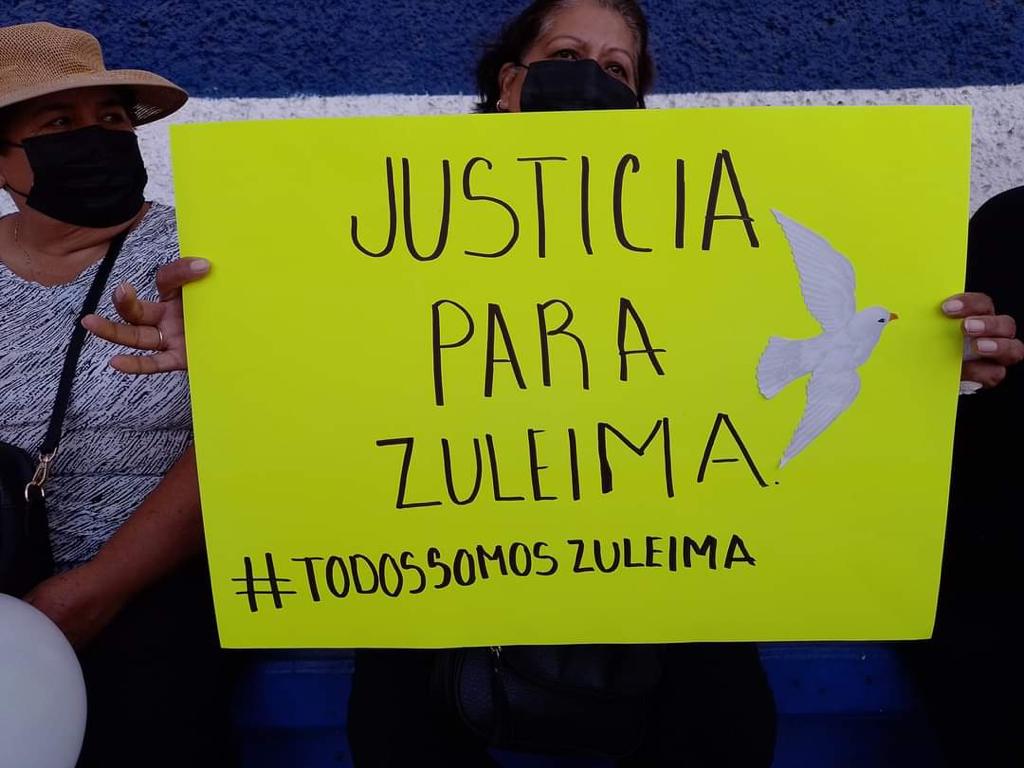 JUSTICIA
PARA
ZULEIMA.
#TODOSSOMOSZULEIMA